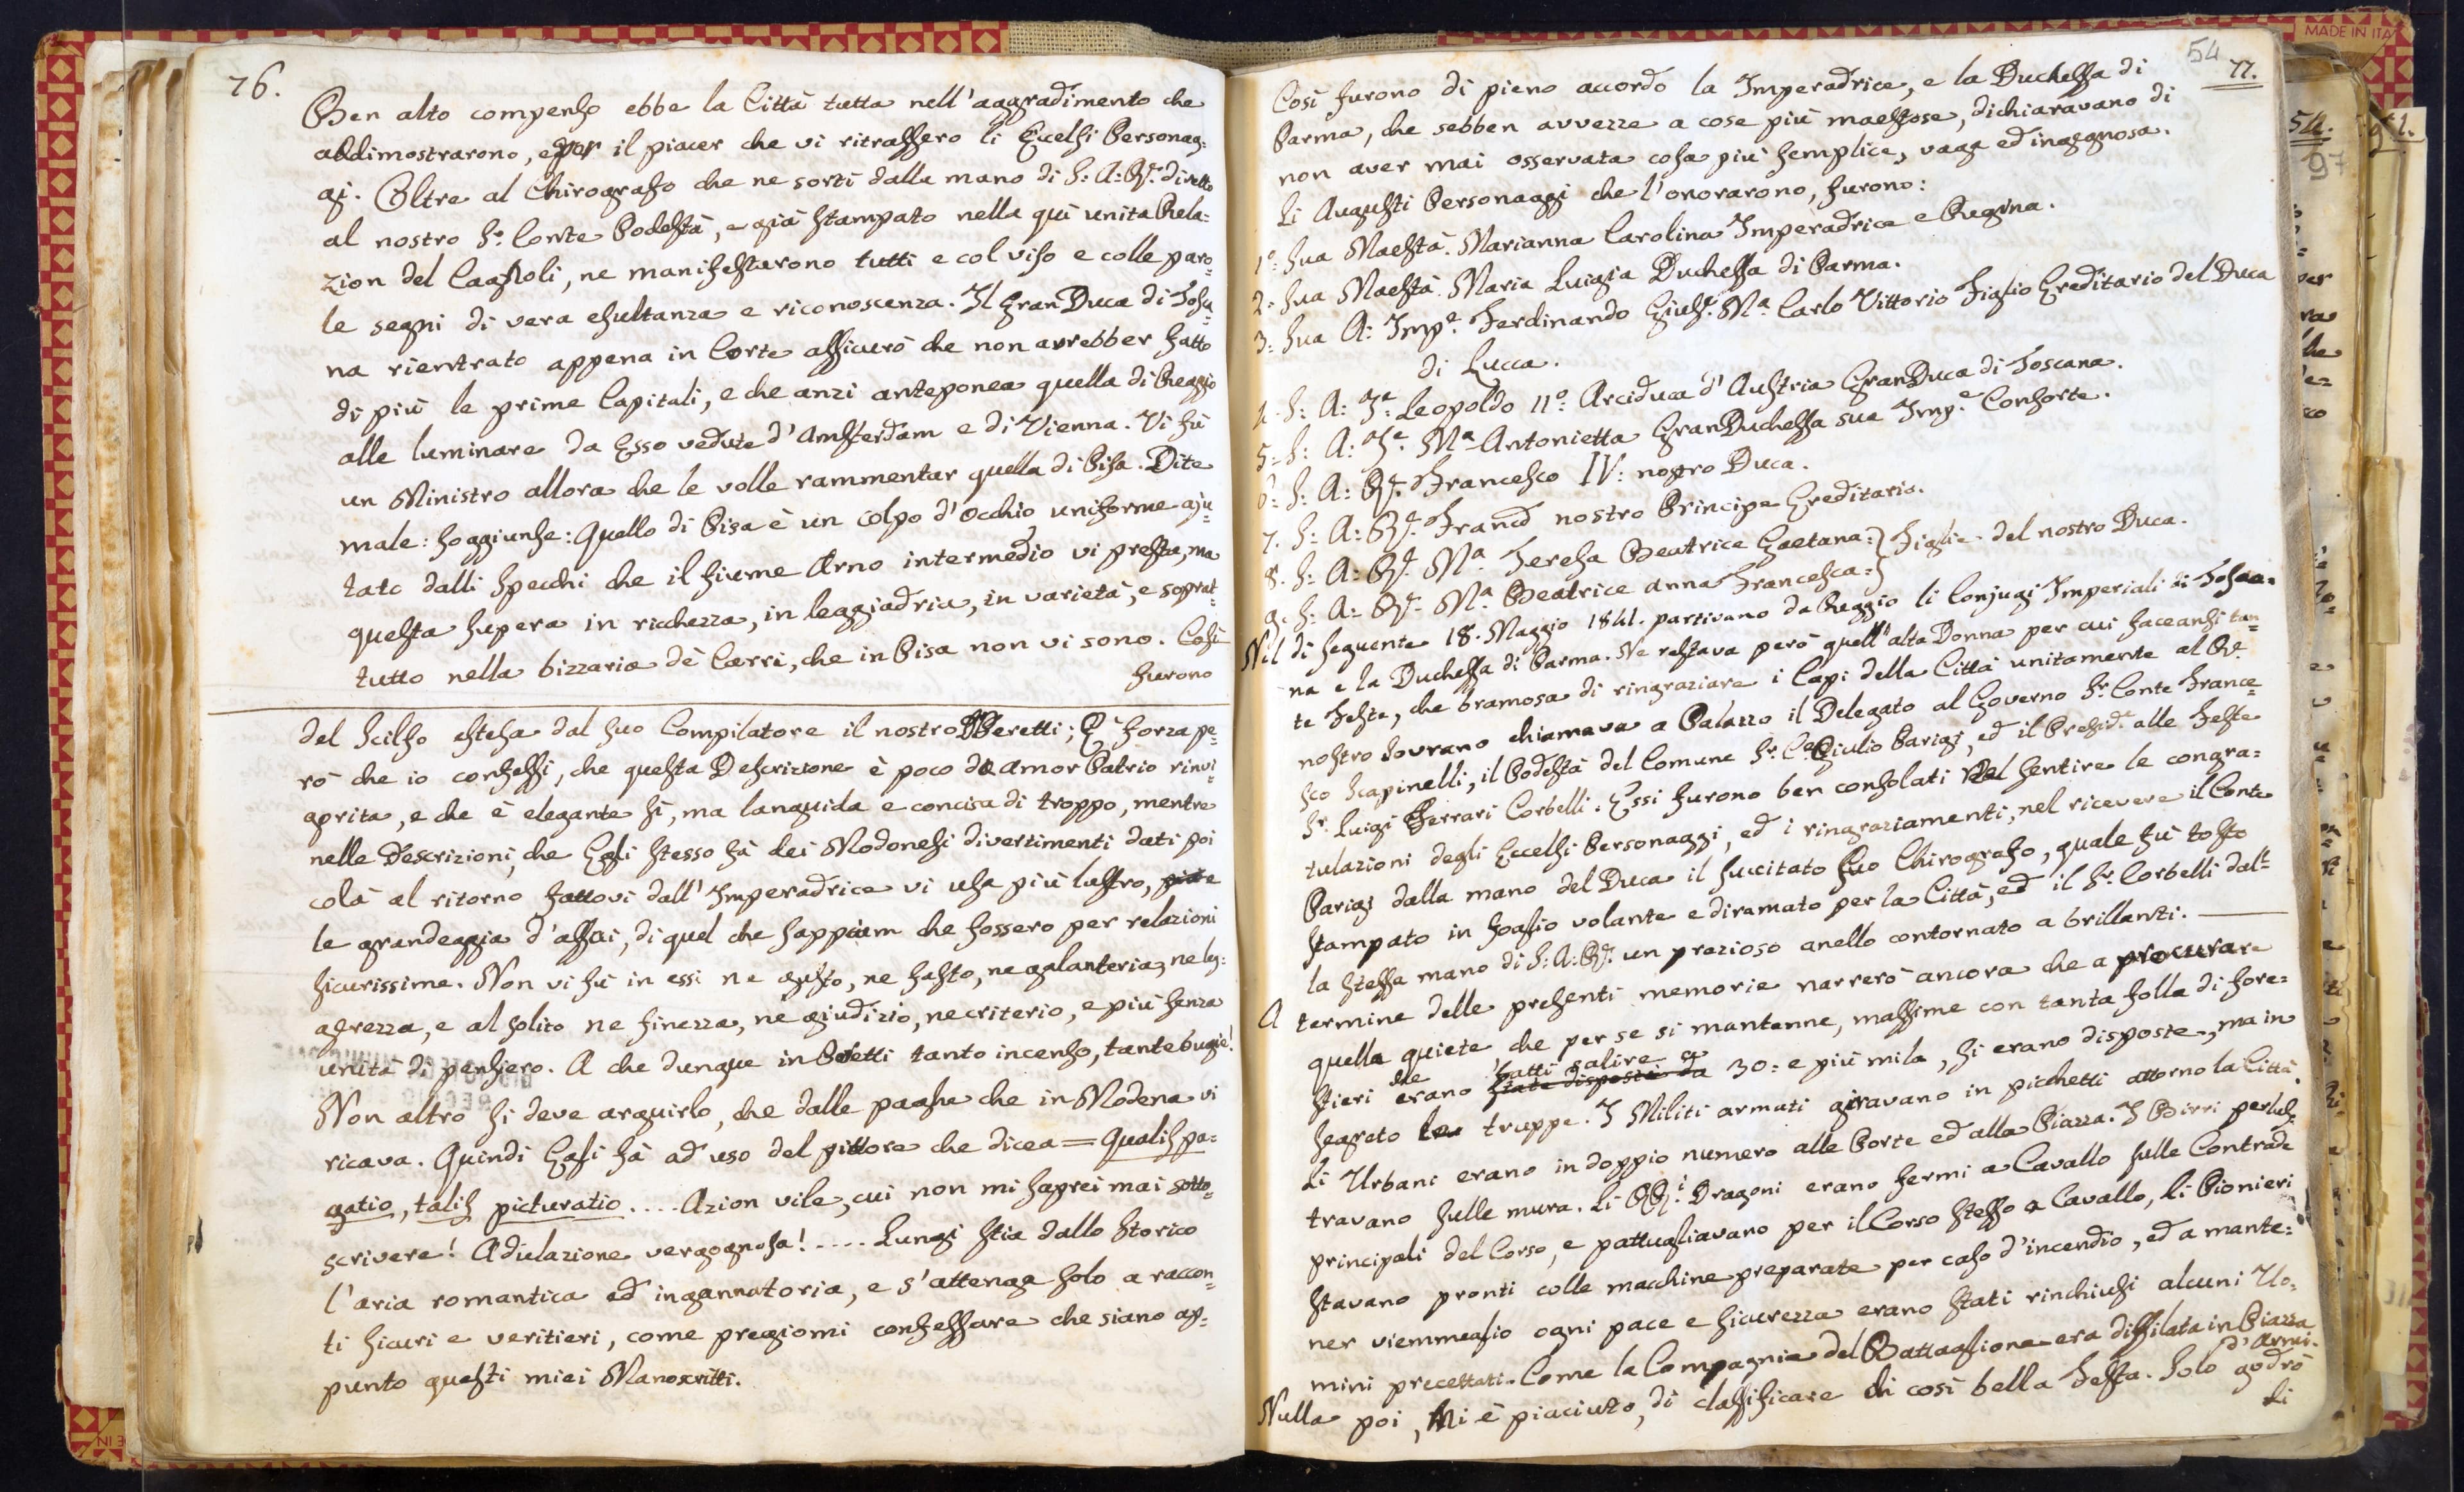 76.
Ben alto compenso ebbe la Città tutta nell'aggradimento che
addimostrarono, e per il piacer che vi ritrassero li Eccelsi Personag:
gi. Oltre al Chirografo che ne sortì dalla mano di S: A: R.e diretto
al nostro Sr. Conte Podestà, e già stampato nella quì unita Rela:
zion del Cagnoli, ne manifestarono tutti e col viso e colle paro:
le segni di vera esultanza e riconoscenza. Il Gran Duca di Tosca:
na rientrato appena in Corte assicurò che non avrebber fatto
di più le prime Capitali, e che anzi anteponea quella di Reggio
alle luminare da Esso vedute d'Amsterdam e di Vienna. Vi fù
un Ministro allora che le volle rammentar quella di Pisa. Dite
male: soggiunse: Quello di Pisa è un colpo d'occhio uniforme aju:
tato dalli specchi che il fiume Arno intermedio vi presta, ma
questa supera in ricchezza, in leggiadria, in varietà, e soprat:
tutto nella bizzaria dè Carri, che in Pisa non vi sono. Così
furono
del Scilso estesa dal suo Compilatore il nostro Peretti; E' forza pe:
rò che io confessi, che questa Descrizione è poco da amor Patrio rinvi:
gorita, e che è elegante sì, ma languida e concisa di troppo, mentre
nelle Descrizioni, che Egli stesso fà dei Modonesi divertimenti dati poi
colà al ritorno fattovi dall'Imperadrice vi usa più lustro,
le grandeggia d'assai, di quel che sappiam che fossero per relazioni
sicurissime. Non vi fù in essi ne gusto, ne fasto, ne galanteria, ne leg:
grezza, e al solito ne finezza, nè giudizio, ne criterio, e più senza
unità di pensiero. A che dunque in Peretti tanto incenso, tante bugie!
Non altro si deve arguirlo, che dalle paghe che in Modena vi
ricava. Quindi Egli fà ad uso del pittore che dicea = Qualis pa:
gatio, talis picturatio.... Azion vile, cui non mi saprei mai sotto:
scrivere! Adulazione vergognosa!.... Lungi stia dallo Storico
l'aria romantica ed ingannatoria, e s'attenga solo a raccon:
ti sicuri e veritieri, come pregiomi confessare che siano ap:
punto questi miei Manoscritti.
54
77.
Così furono di pieno accordo la Imperadrice, e la Duchessa di
Parma, che sebben avvezze a cose più maestose, dichiaravano di
non aver mai osservata cosa più semplice, vaga ed ingegnosa.
Li Augusti Personaggi che l'onorarono, furono:
1.º Sua Maestà. Marianna Carolina Imperadrice e Regina.
2: Sua Maestà. Maria Luigia Duchessa di Parma.
3: Sua A: Imp.e Ferdinando Gius.e M.a Carlo Vittorio Figlio Ereditario del Duca
di Lucca.
4. S: A: I.e Leopoldo IIº. Arciduca d'Austria GranDuca di Toscana.
5: S: A: I.e M.a Antonietta GranDuchessa sua Imp.e Consorte.
6: S: A: R.e Francesco IV: nostro Duca.
7. S: A: R.e Franc.o nostro Principe Ereditario.
8. S: A: R.e M.a Teresa Beatrice Gaetana: } Figlie del nostro Duca.
9. S: A: R.e M.a Beatrice anna Francesca: }
Nil dì seguente 18. Maggio 1841. partivano da Reggio li Conjugi Imperiali di Tosca:
na e la Duchessa di Parma. Ne restava però quell'alta Donna per cui faceansi tan:
te Feste, che bramosa di ringraziare i Capi della Città unitamente al R.e
nostro Sovrano chiamava a Palazzo il Delegato al Governo Sr. Conte France:
sco Scapinelli, il Podestà del Comune Sr. C.e Giulio Parigi, ed il Presid.e alle Feste
Sr. Luigi Ferrari Corbelli. Essi furono ben consolati nel sentire le congra:
tulazioni degli Eccelsi Personaggi, ed i ringraziamenti, nel ricevere il Conte
Parigi dalla mano del Duca il succitato suo Chirografo, quale fù tosto
stampato in foglio volante e diramato per la Città, ed il Sr. Corbelli dal:
la stessa mano di S: A: R.e un prezioso anello contornato a brillanti.
A termine delle presenti memorie narrerò ancora che a procurare
quella quiete, che per se si mantenne, massime con tanta folla di fore:
stieri che erano state disposti da fatti salire a 30: e più mila, si erano disposte, ma in
segreto le truppe. I Militi armati giravano in picchetti attorno la Città.
Li Urbani erano in doppio numero alle Porte ed alla Piazza. I Birri perlus:
travano sulle mura. Li RR.i Dragoni erano fermi a Cavallo sulle Contrade
principali del Corso, e pattugliavano per il Corso stesso a Cavallo, li Pionieri
stavano pronti colle macchine preparate per caso d'incendio, ed a mante:
ner viemmeglio ogni pace e sicurezza erano stati rinchiusi alcuni Uo:
mini precettati. Come la Compagnia del Battaglione era disfilata in Piazza
d'Armi.
Nulla poi, mi è piaciuto, di classificare di così bella Festa. Solo godrò
di
MADE IN ITA